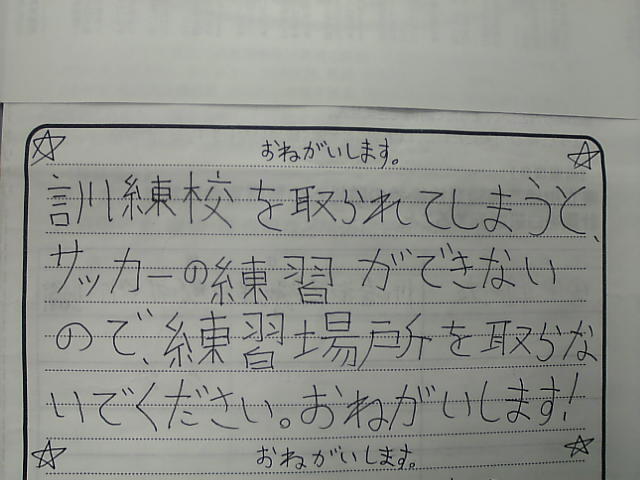 おねがいします。
訓練校を取られてしまうと、
サッカーの練習ができない
ので、練習場所を取らな
いでください。おねがいします!
おねがいします。